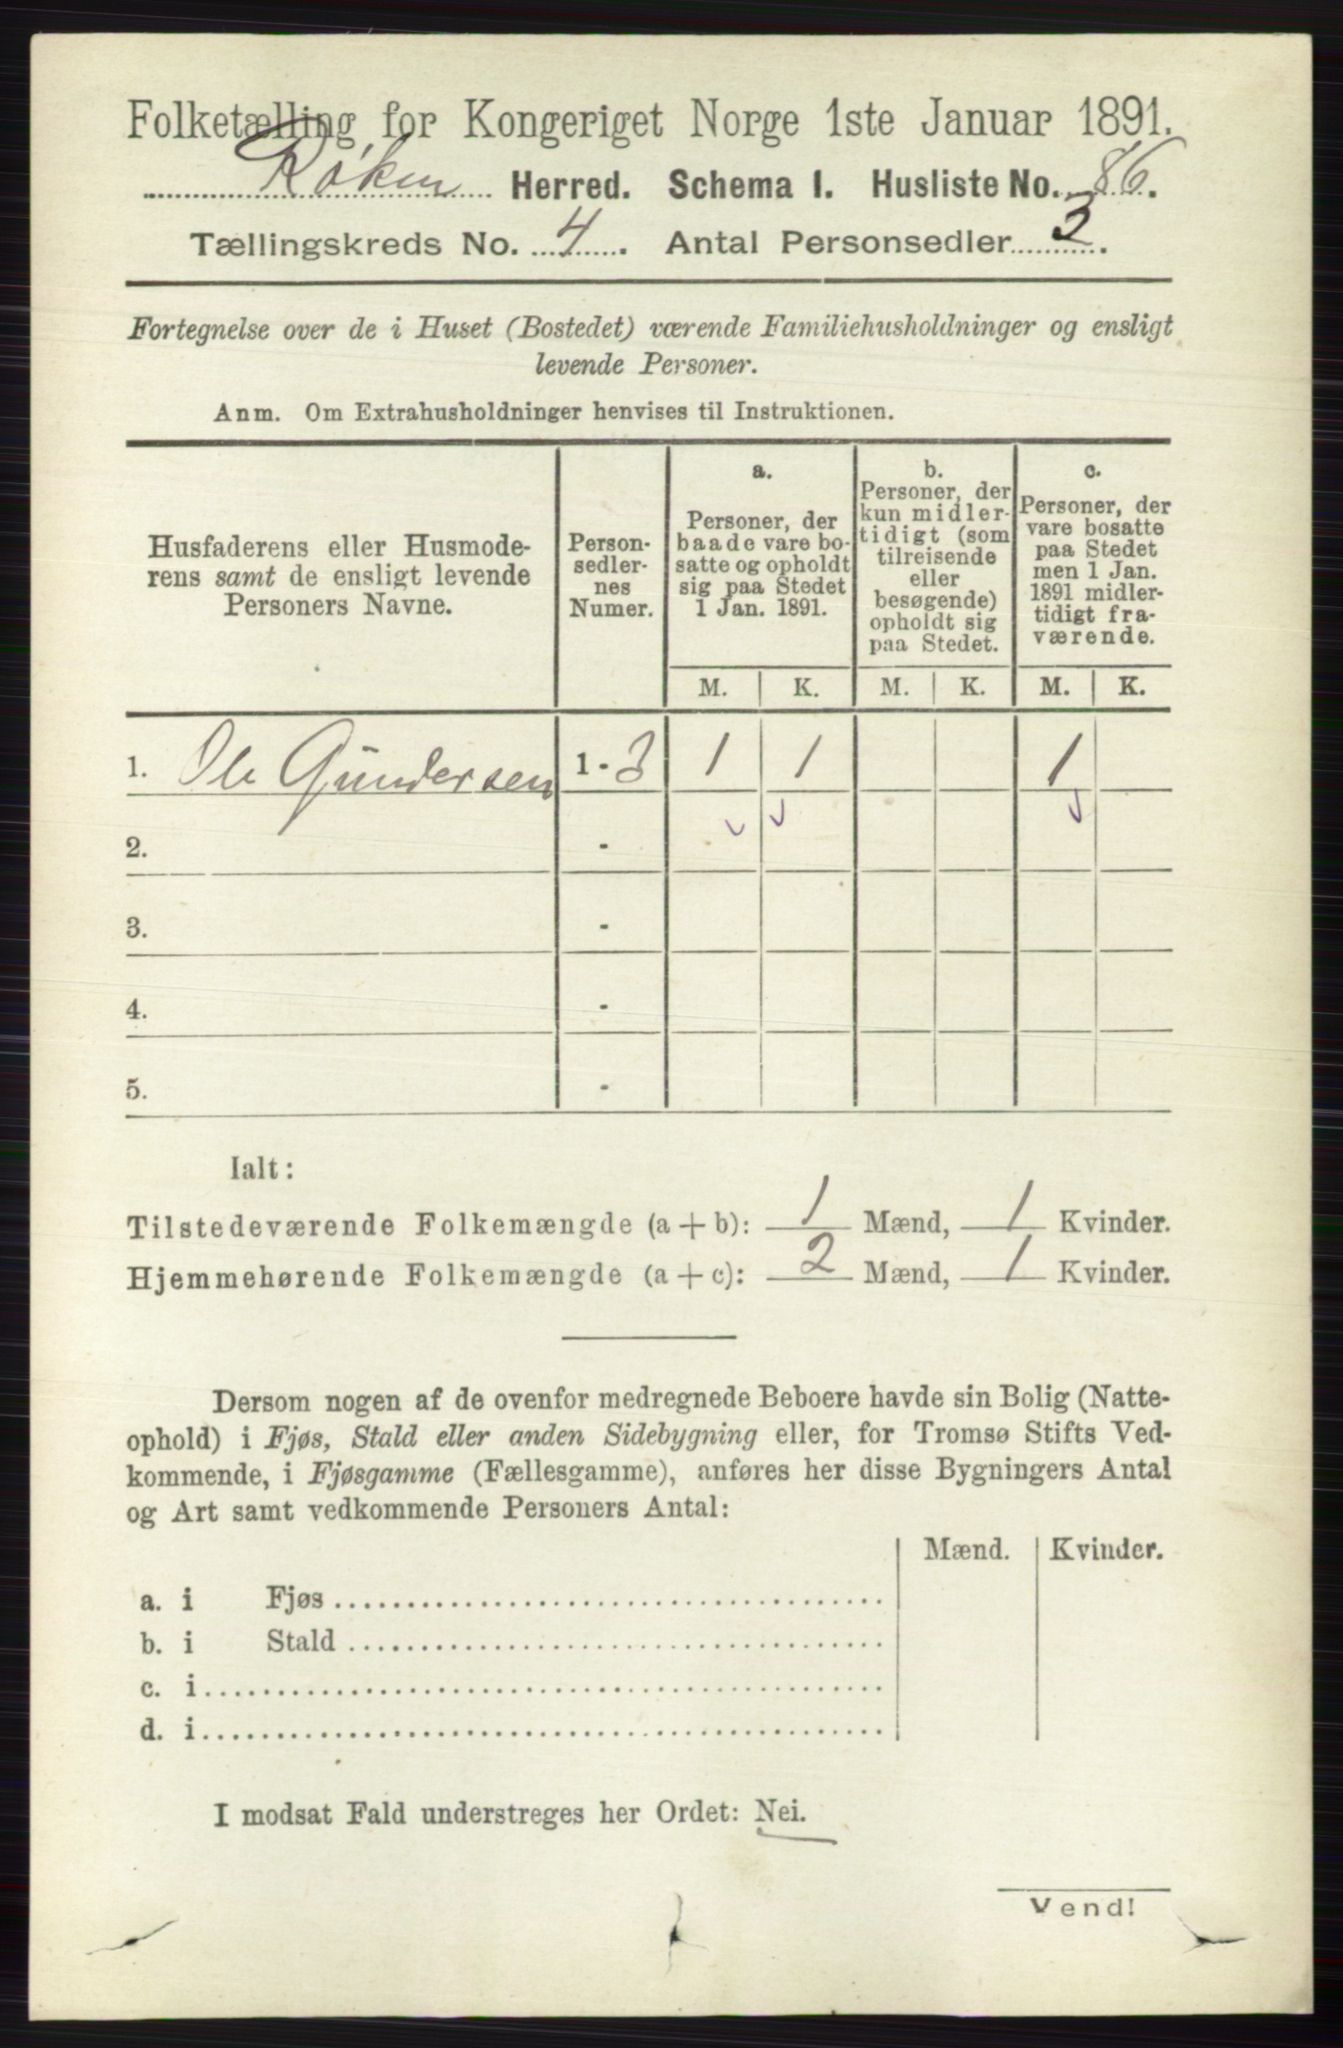 Folketælling for Kongeriget Norge 1ste Januar 1891.
Røken Herred. Schema 1. Husliste No. 86.
Tællingskreds No. 4. Antal Personsedler 3.
Fortegnelse over de i Huset (Bostedet) værende Familiehusholdninger og ensligt
levende Personer.
Anm. Om Extrahusholdninger henvises til Instruktionen.
Husfaderens eller Husmode-
rens samt de ensligt levende
Personers Navne.
Person-
sedler-
nes
Numer.
a.
Personer, der
baade vare bo-
satte og opholdt
sig paa Stedet
1 Jan. 1891.
b.
Personer, der
kun midler-
tidigt (som
tilreisende
eller
besøgende)
opholdt sig
paa Stedet.
c.
Personer, der
vare bosatte
paa Stedet
men 1 Jan.
1891 midler-
tidigt fra-
værende.
M. K. M. K. M. K.
1. Ole Gundersen 1 - 3 1 1 1
2. -
3. -
4. -
5. -
Ialt:
Tilstedeværende Folkemængde (a + b): 1 Mænd, 1 Kvinder.
Hjemmehørende Folkemængde (a + c): 2 Mænd, 1 Kvinder.
Dersom nogen af de ovenfor medregnede Beboere havde sin Bolig (Natte-
ophold) i Fjøs, Stald eller anden Sidebygning eller, for Tromsø Stifts Ved-
kommende, i Fjøsgamme (Fællesgamme), anføres her disse Bygningers Antal
og Art samt vedkommende Personers Antal:
Mænd. Kvinder.
a. i Fjøs
b. i Stald
c. i
d. i
I modsat Fald understreges her Ordet: Nei.
Vend!